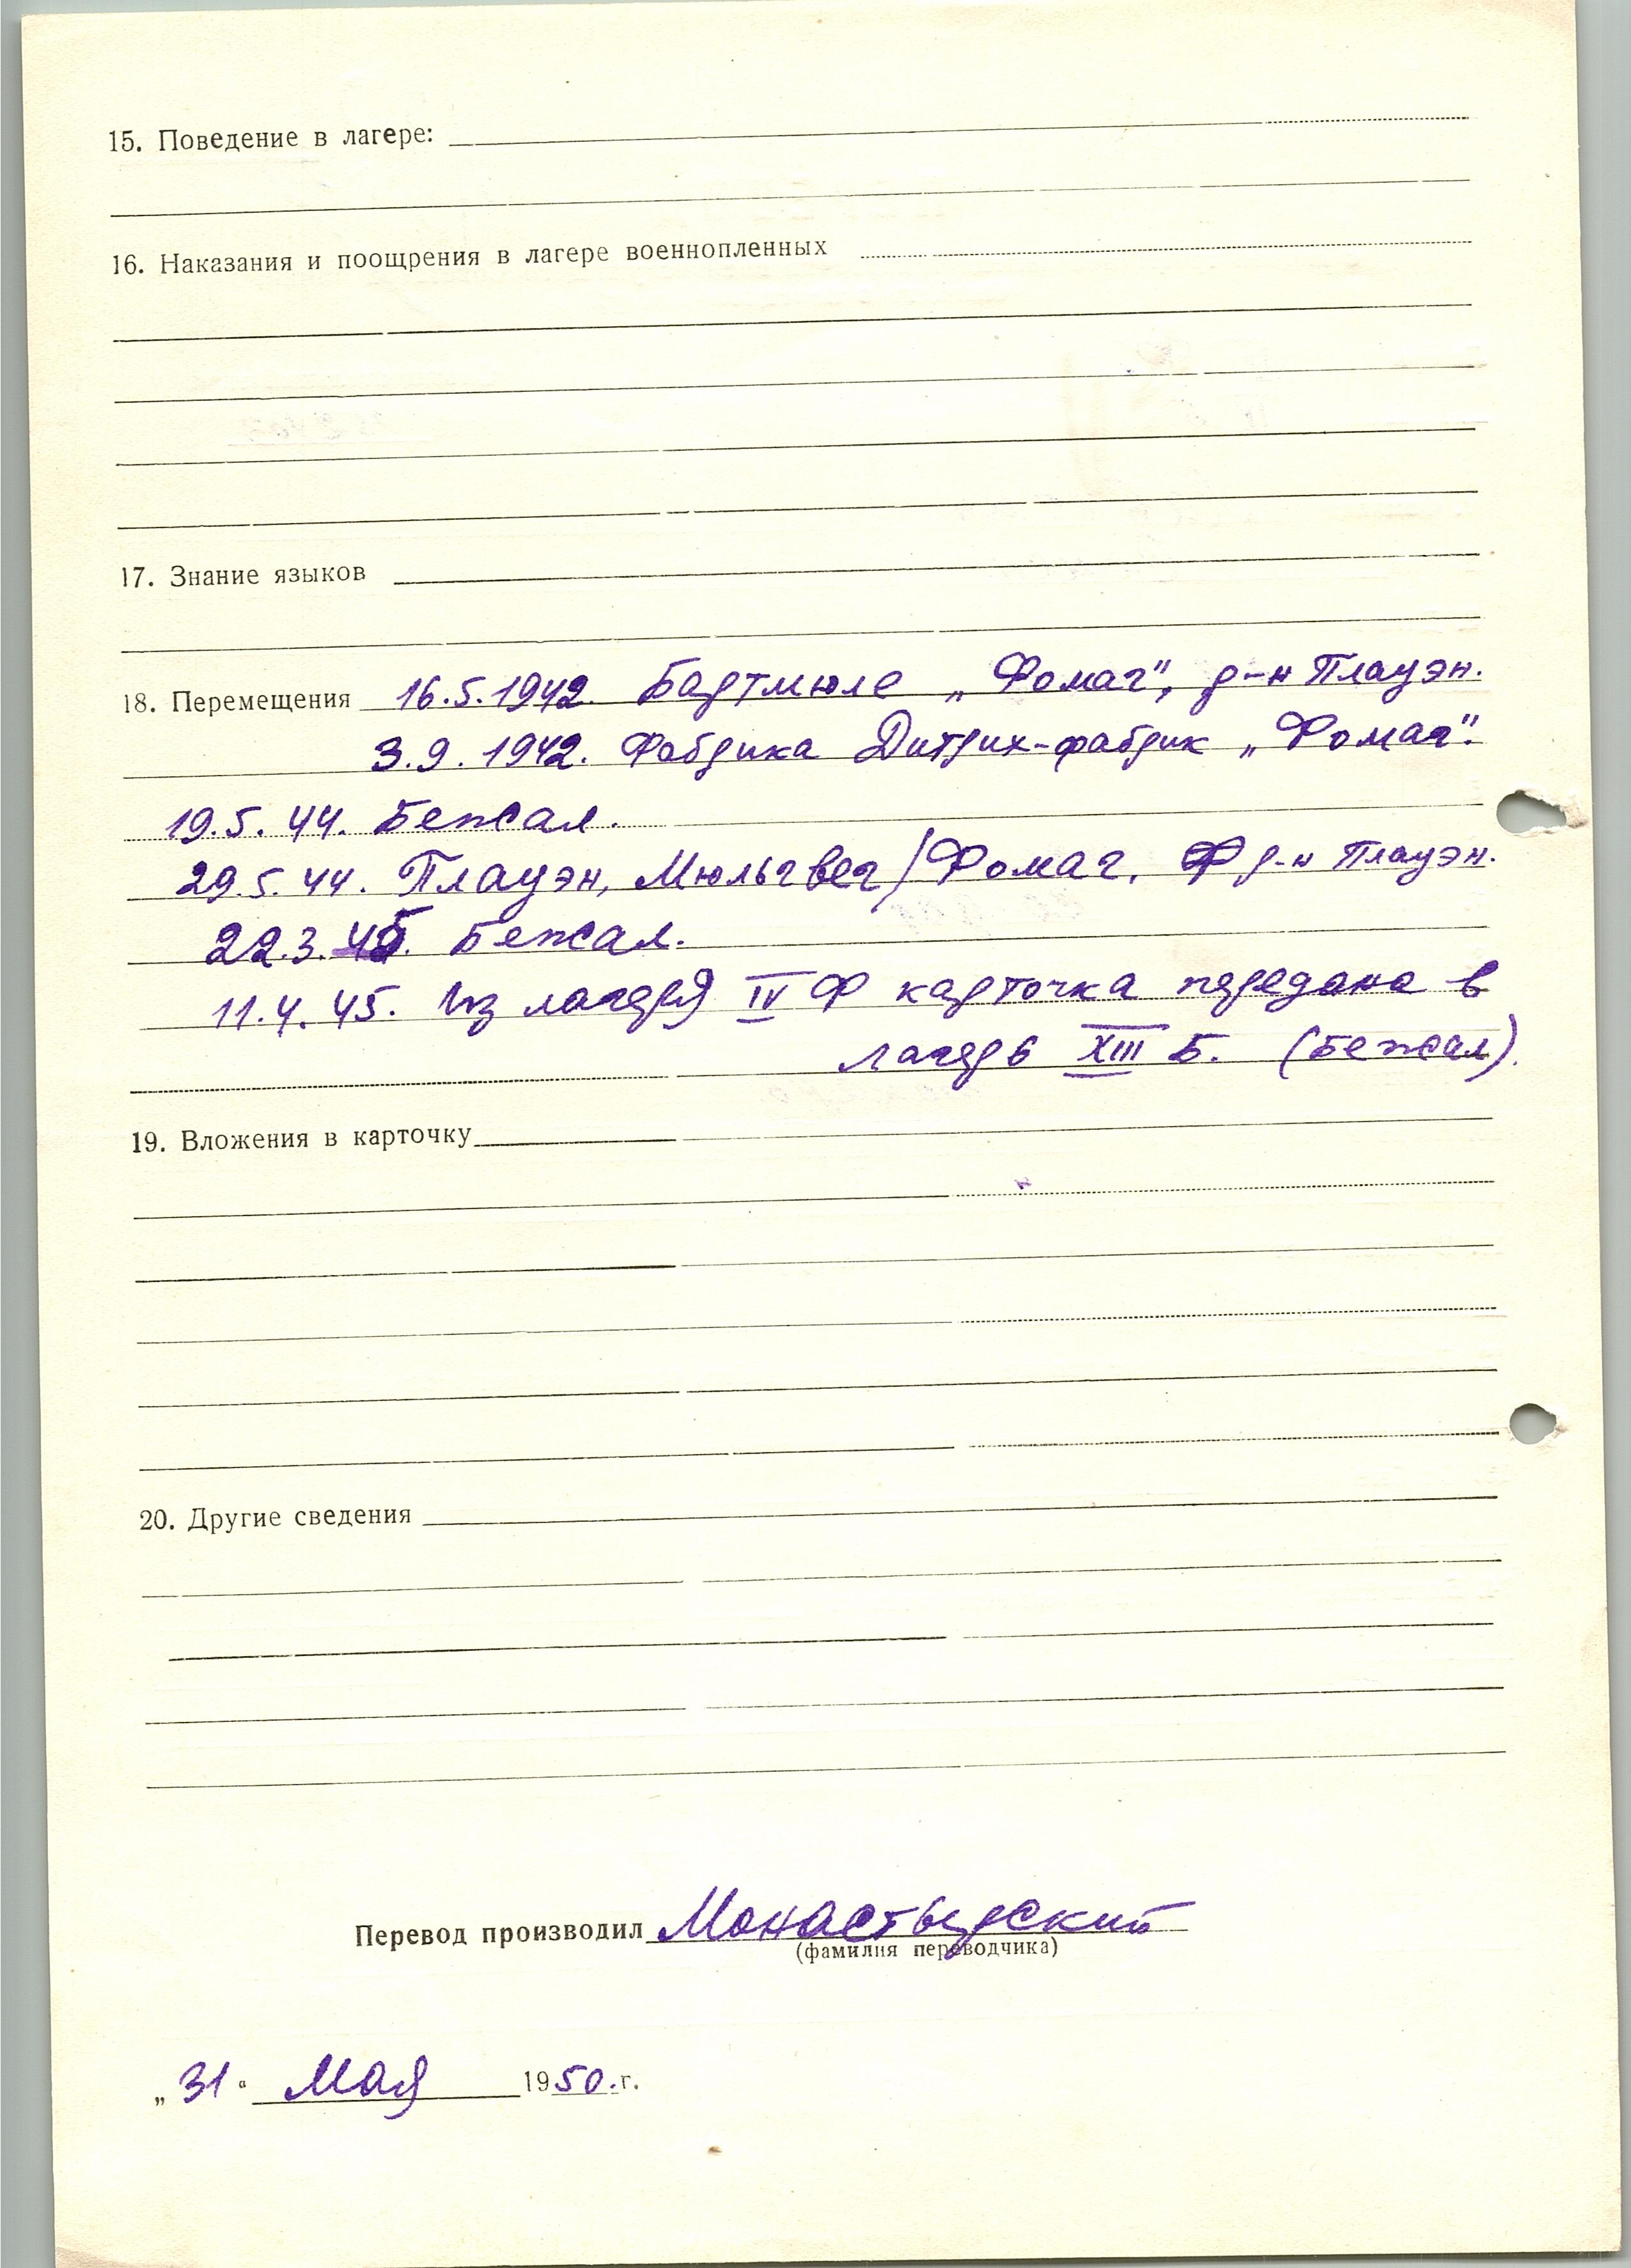 15. Поведение в лагере:
16. Наказания и поощрения в лагере военнопленных
17. Знание языков
18. Перемещения 16.5.1942. Бартмюле „Фомаг", р-н Плауэн.
3.9.1942. Фабрика Дитрих-фабрик „Фомаг".
19.5.44. Бежал.
29.5.44. Плауэн, Мюльгвег/Фомаг, р-н Плауэн.
22.3.45. Бежал.
11.4.45. Из лагеря IV Ф карточка передана в
лагерь XIII Б. (Бежал).
19. Вложения в карточку
20. Другие сведения
Перевод производил Монастырский
(фамилия переводчика)
„31" Мая 1950.г.